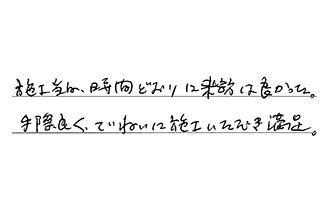 施工当日、時間どおりに来訪は良かった。
手際良く、ていねいに施工いただき満足。